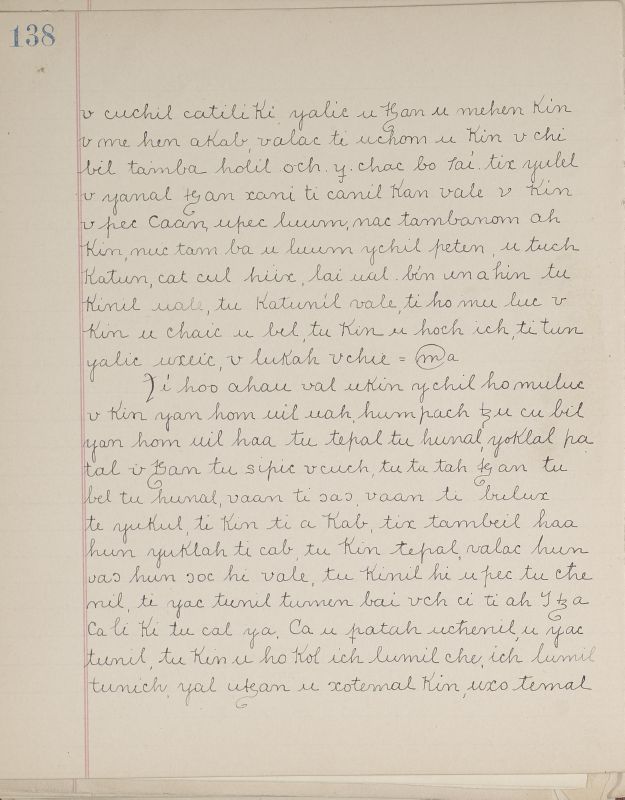 138
v cuchil catili Ki, yalic u ꜩan u mehen Kin
v me hen aKab, valac ti uchom u Kin v chi
bil tamba holil och. y. chac bo lai. tix yulel
v yanal ꜩan xani ti canil Kan vale v Kin
v pec Caan, upec luum, nac tambanom ah
Kin, nuc tam ba u luum ychil peten, u tuch
Katun, cat cul hiix, lai ual. bin unahin tu
Kinil uale, tu Katunil vale, ti ho mu luc v
Kin u chaic u bel, tu Kin u hoch ich, ti tun
yalic uxeic, v lukah vchie = ma
Ti hoo ahau val ukin ychil ho muluc
v Kin yan hom uil uah, hum pach ꜩu cu bil
yan hom uil haa tu tepal tu hunal, yoklal pa
tal v ꜩan tu sipic vcuch, tu tu tah ꜩan tu
bel tu hunal, vaan ti ɔaɔ, vaan ti bulux
te yukul, ti Kin ti a Kab, tix tambeil haa
hun yuklah ti cab, tu Kin tepal, valac hun
vaɔ hun ɔoc hi vale, tu Kinil hi upec tu che
nil, ti yac tunil tumen bai vch ci ti ah Itza
Ca li Ki tu cal ya, Ca u patah uchenil, u yac
tunil, tu Kin u ho Kol ich lumil che, ich lumil
tunich, yal uꜩan u xotemal Kin, uxo temal